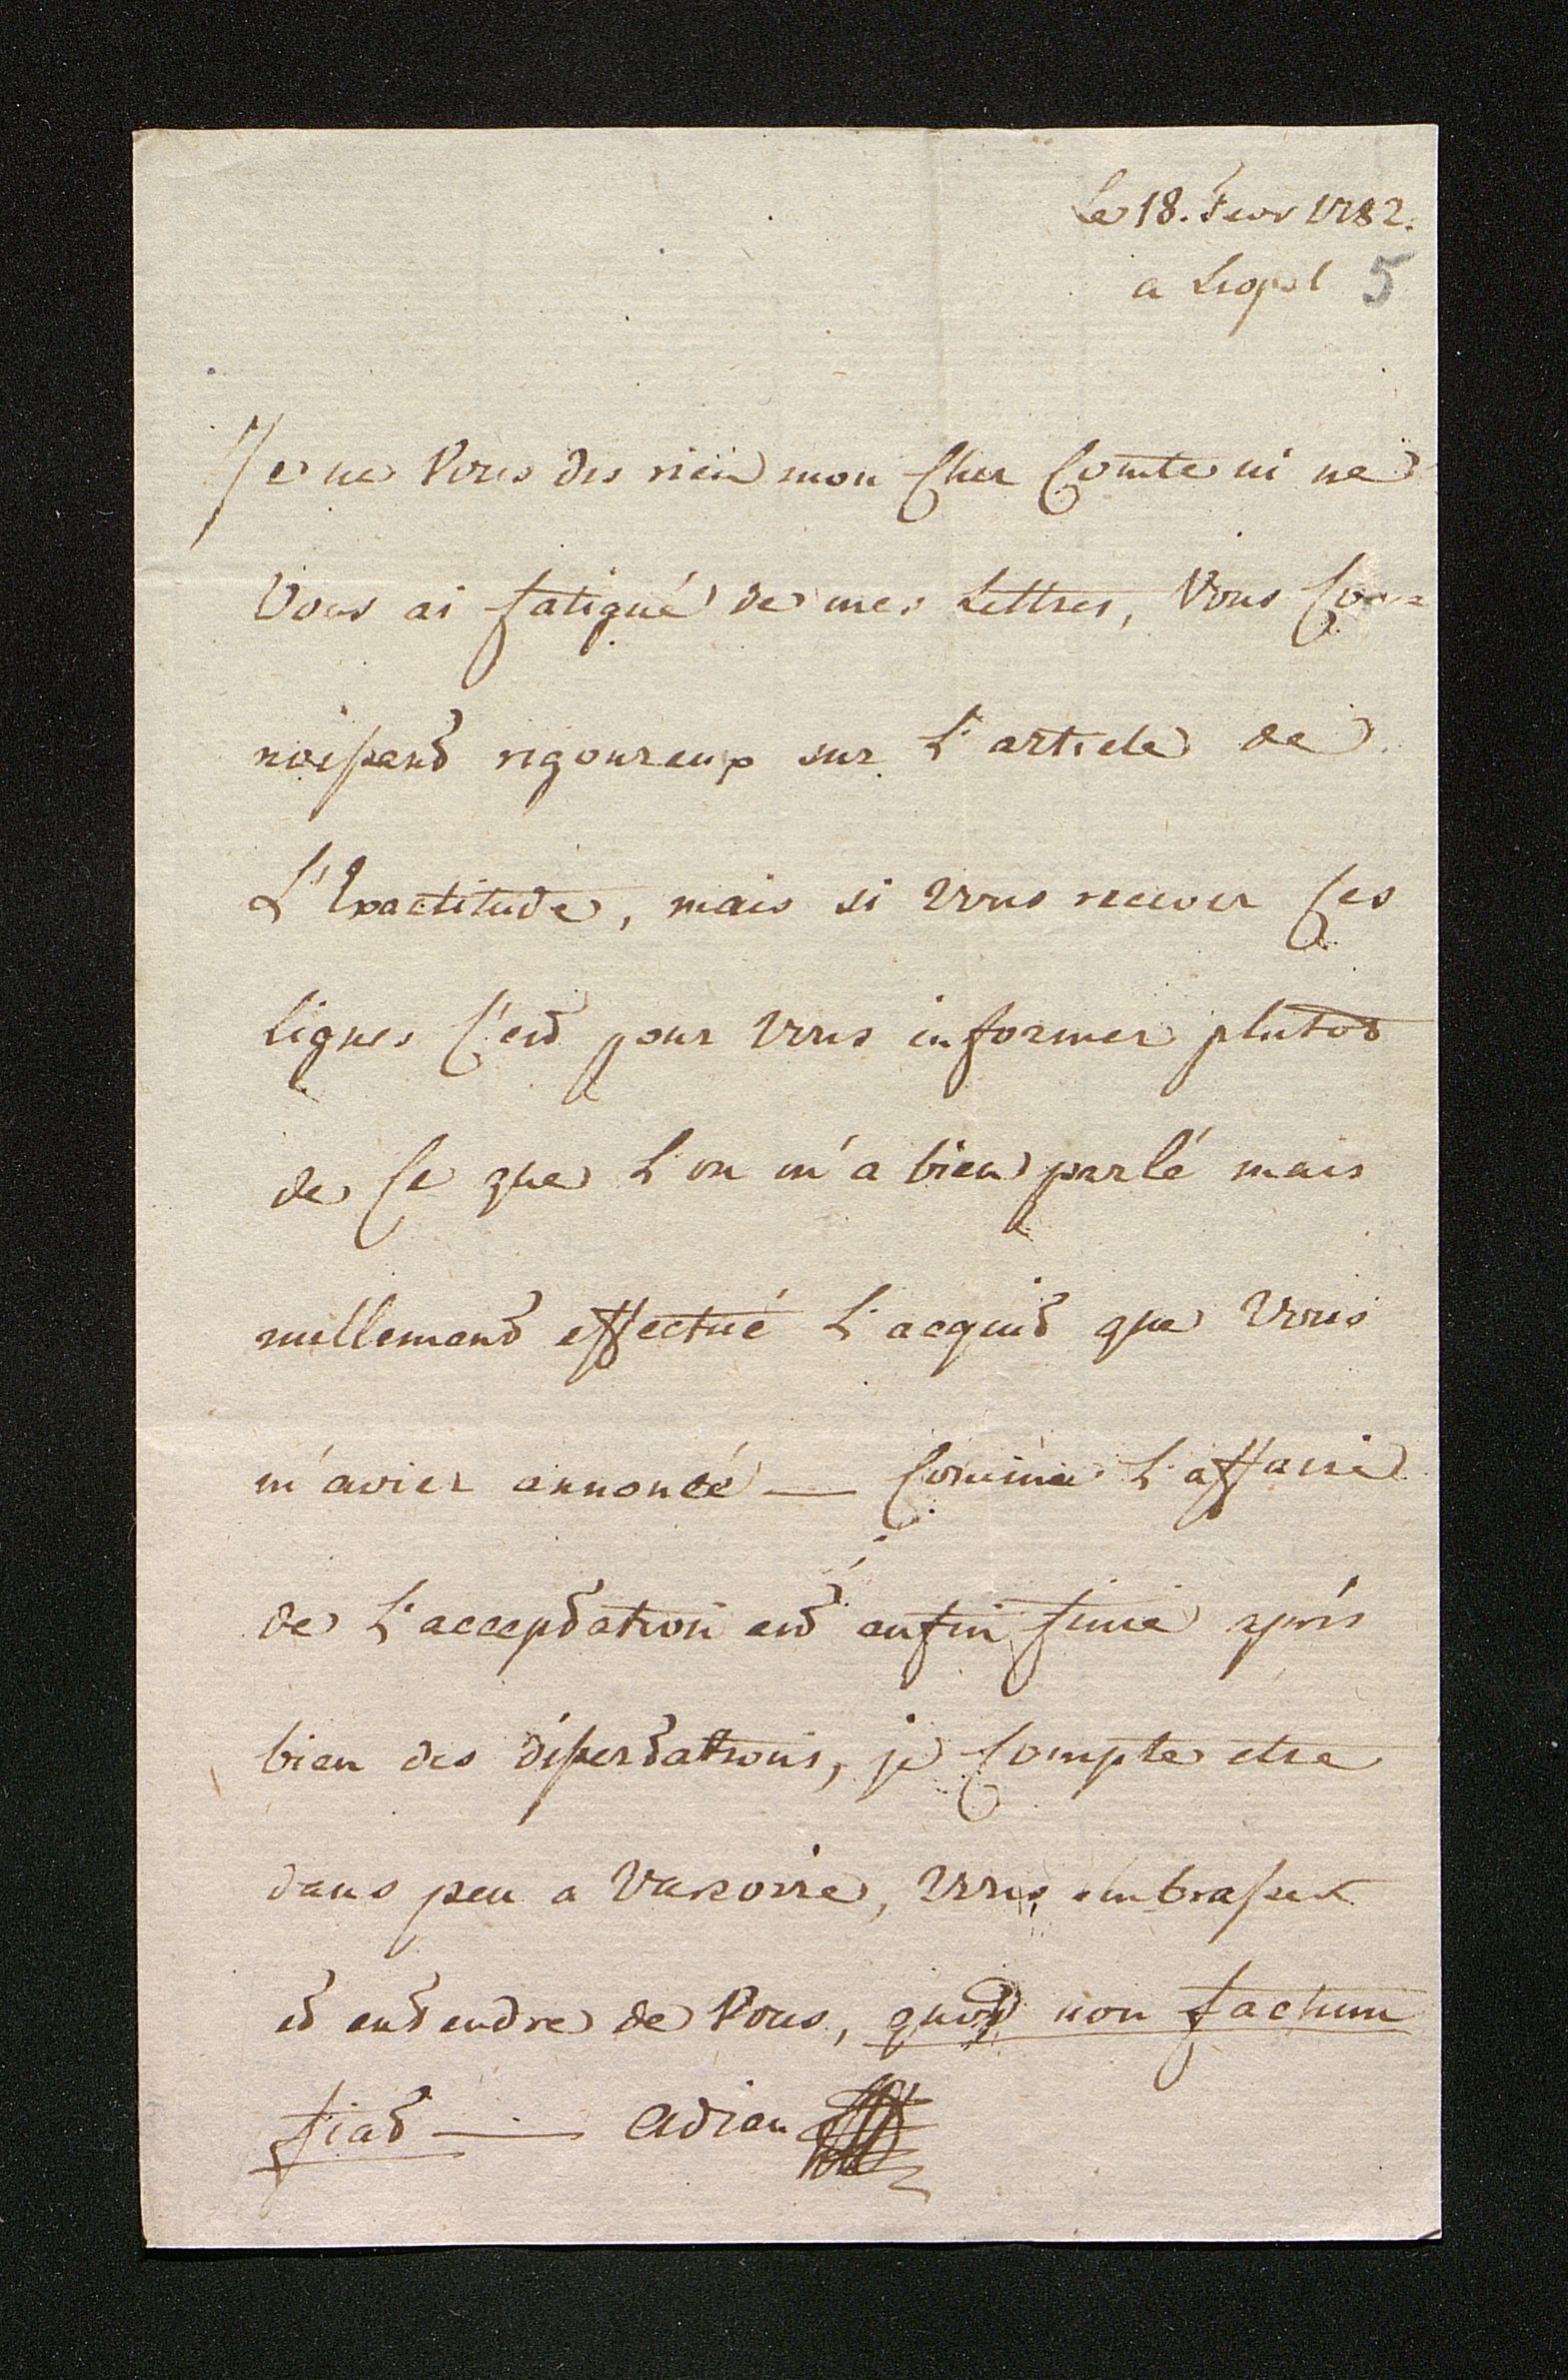 Le 18. Fevr 1782.
a Leopol 5
Je ne Vous dis rien mon Cher Comte ni ne
Vous ai fatigué de mes Lettres, Vous Con=
noissant rigoureux sur L'article de
L'Exactitude, mais si Vous recever Ces
lignes C'est pour Vous informer plutot
de Ce que L'on m'a bien parlé mais
nullement effectué L'acquit que Vous
m'avier annoncé — Comme L'affaire
de L'acceptation est enfin finie aprés
bien des disertations, je Compte etre
dans peu a Varsovie, Vous embrasser
et entendre de Vous, quod non factum
fiat — Adieu